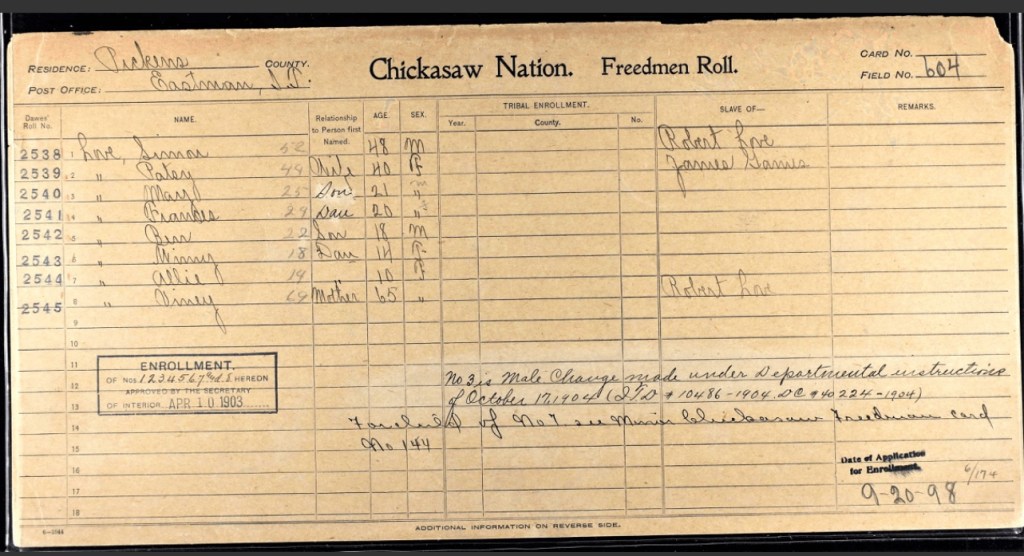 RESIDENCE: Pickens COUNTY. Chickasaw Nation. Freedmen Roll. CARD NO.
POST OFFICE: Eastman, I.T. FIELD NO. 604
Dawes' Roll No. NAME. Relationship to Person first Named. AGE. SEX. TRIBAL ENROLLMENT. Year. County. No. SLAVE OF— REMARKS.
2538 1 Love, Simon 52 48 M Robert Love
2539 2 " Patsy 44 Wife 40 F James
2540 3 " May 25 Son 21 m "
2541 4 " Frances 24 Dau 20 "
2542 5 " Ben 22 Son 18 M
2543 6 " Winny 18 Dau 14 F
2544 7 " Allie 14 10 F
2545 8 " Viney 69 Mother 65 " Robert Love
9
10
11
12
13
14
15
16
17
18
ENROLLMENT.
OF NOS. 1 2 3 4 5 6 7 and 8 HEREON
APPROVED BY THE SECRETARY
OF INTERIOR APR 10 1903
No 3 is Male Change made under Departmental instructions
of October 17, 1904 (ITD # 10486-1904. DC # 40224-1904)
For child of No 7 see Minor Chickasaw Freedman card
No 144
Date of Application
for Enrollment.
6/174
9-20-98
ADDITIONAL INFORMATION ON REVERSE SIDE.